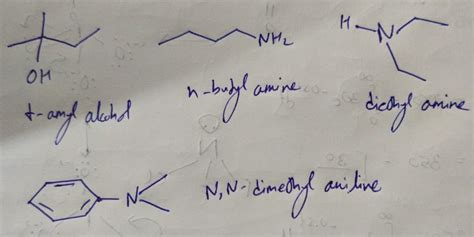 OH
t-amyl alcohol
NH₂
n-butyl amine
H N
diethyl amine
N
N,N-dimethyl aniline